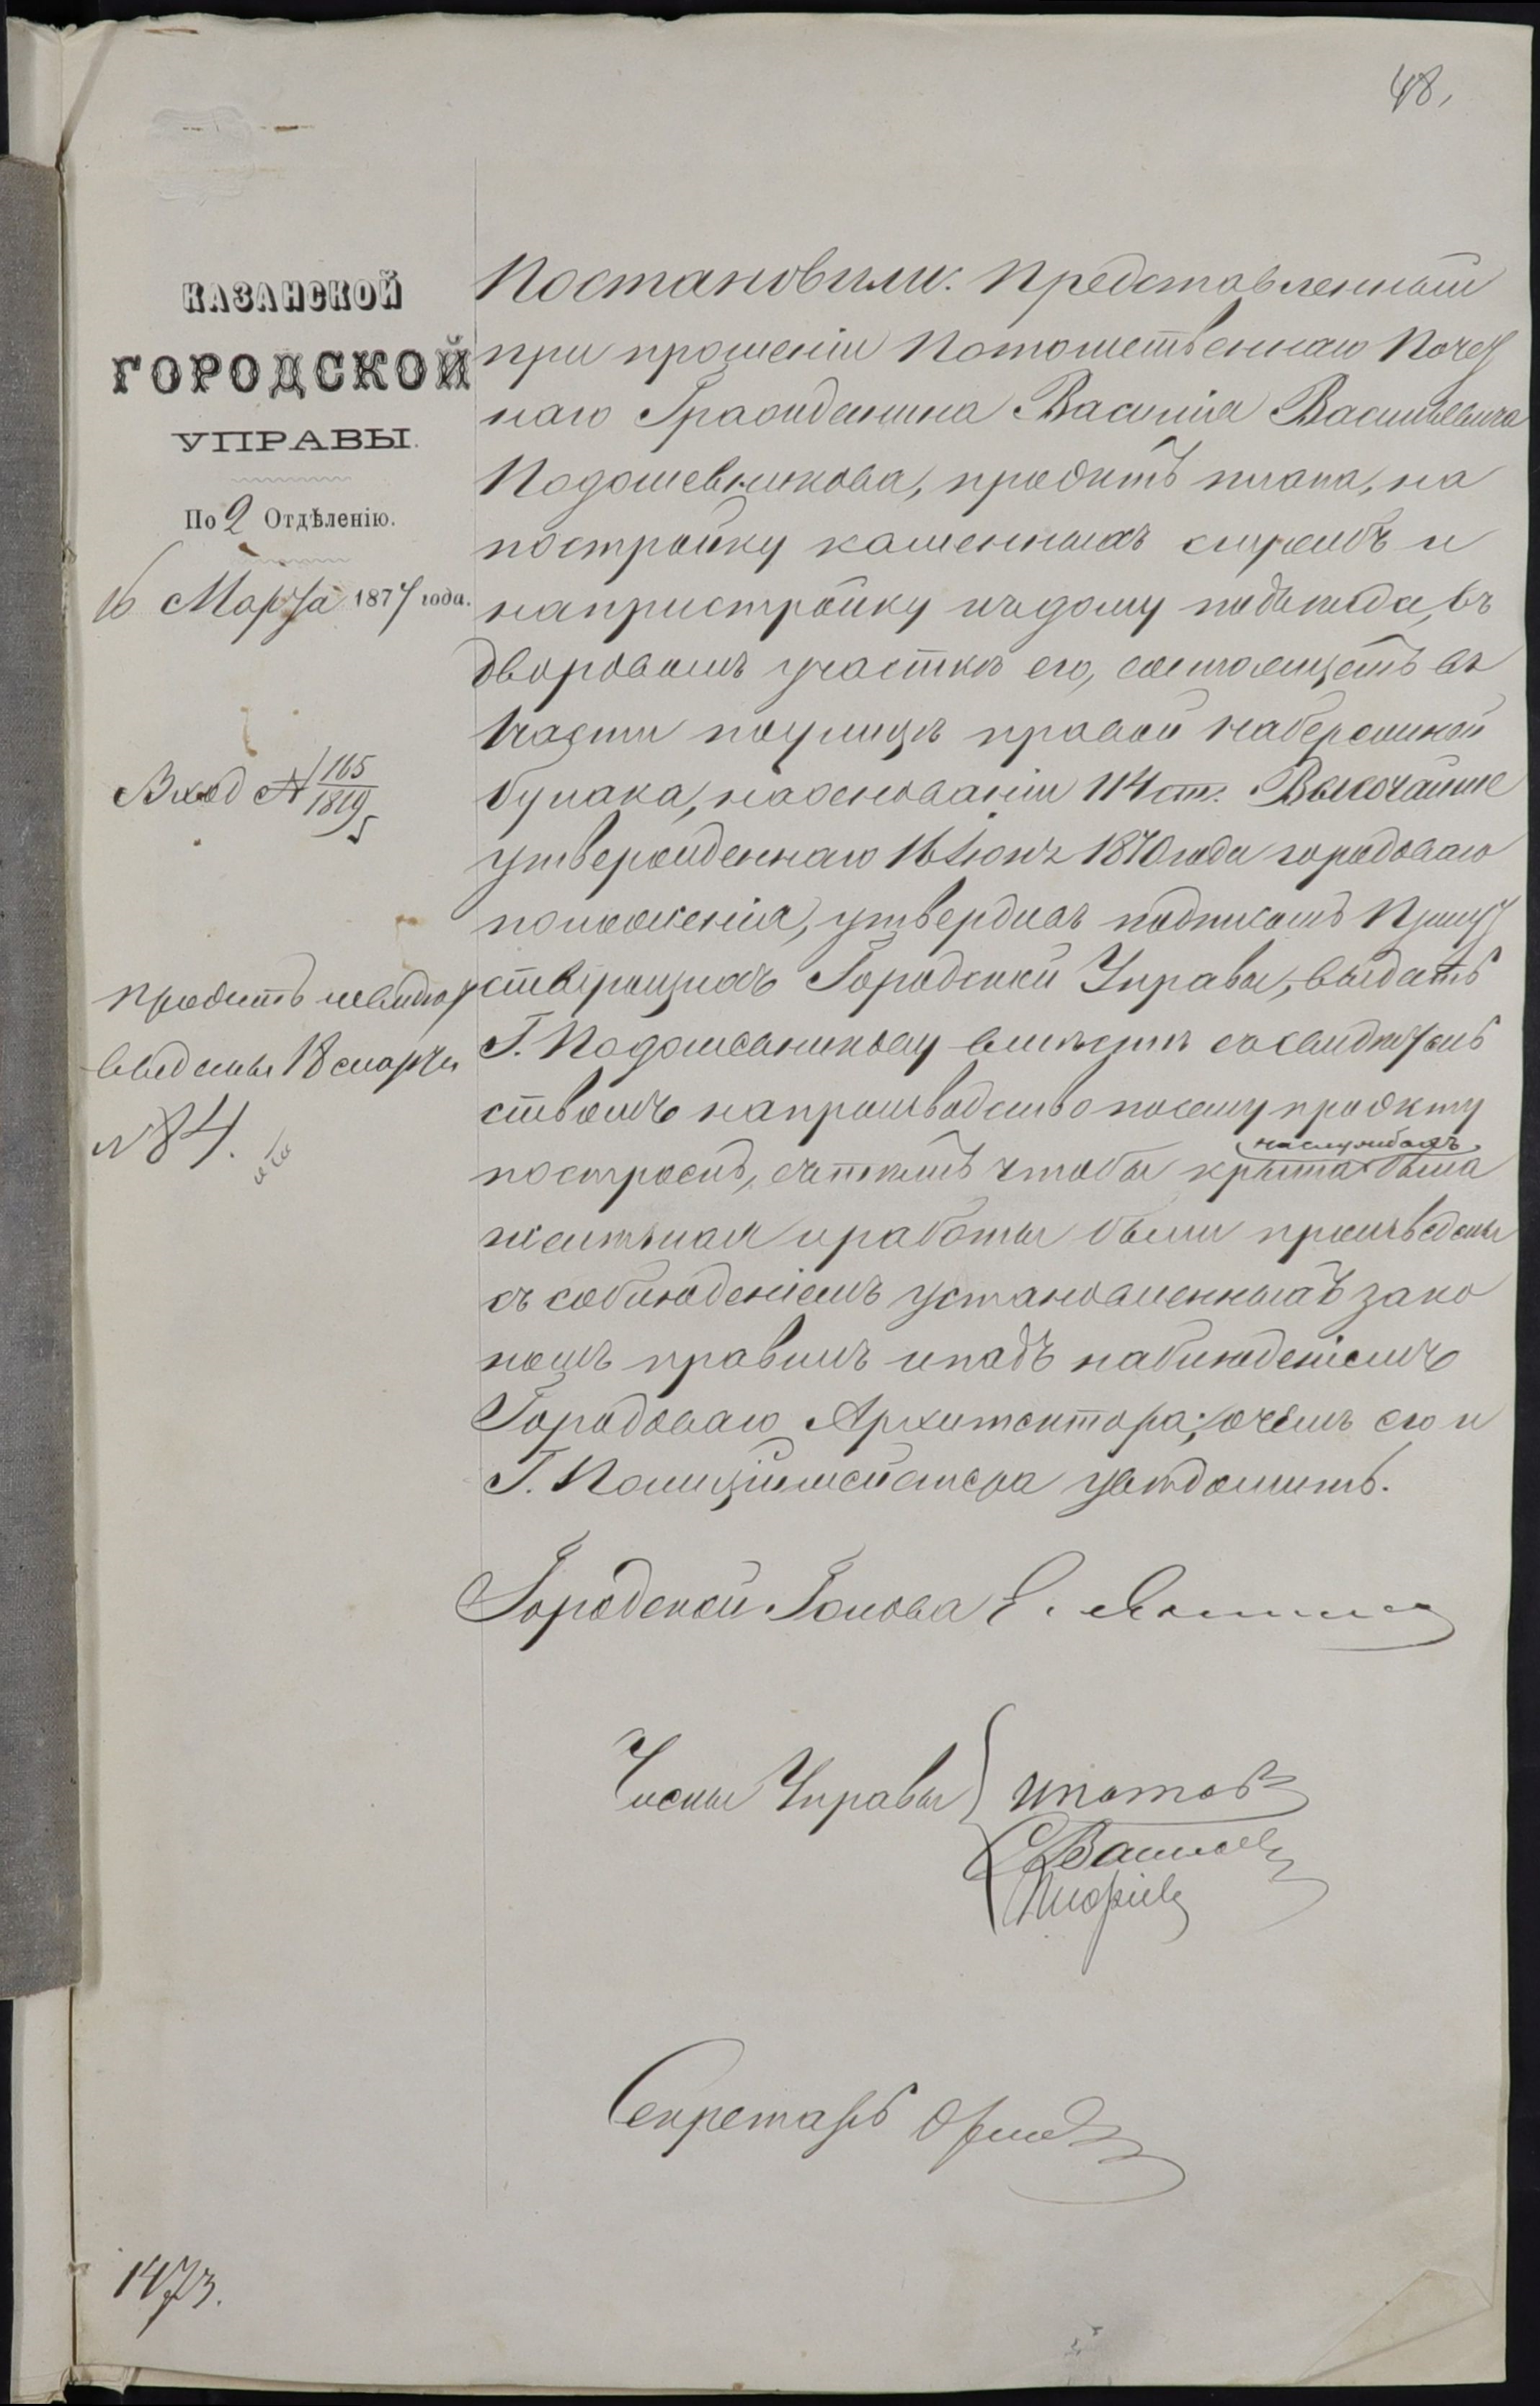 48.
КАЗАНСКОЙ
ГОРОДСКОЙ
УПРАВЫ.
По 2 Отдѣленію.
16 Марта 1877 года.
Вход № 165/1819
Проектъ и свидѣт
выданы 18 марта
№ 84.
Постановили: Представленный
при прошеніи Потомственнаго Почет
наго Гражданина Василія Васильевича
Подошевникова, проэктъ плана, на
постройку каменныхъ службъ и
на пристройку къ дому подъѣзда, въ
дворовомъ участкѣ его, состоящемъ въ
1 части по улицѣ правой набережной
булака, на основаніи 114 ст. Высочайше
утвержденнаго 16 Іюня 1870 года городоваго
положенія, утвердивъ подписомъ Присут
ствующихъ Городской Управы, выдать
Г. Подошевникову вмѣстѣ со свидѣтель
ствомъ на производство по сему проэкту
построекъ, съ тѣмъ чтобы крыша на службахъ была
желѣзная и работы были произведены
съ соблюденіемъ установленныхъ зако
номъ правилъ и подъ наблюденіемъ
Городоваго Архитектора; о чемъ его и
Г. Полиціймейстера увѣдомить.
Городской Голова Е.
Члены Управы
Ипатовъ
Секретарь
1473.